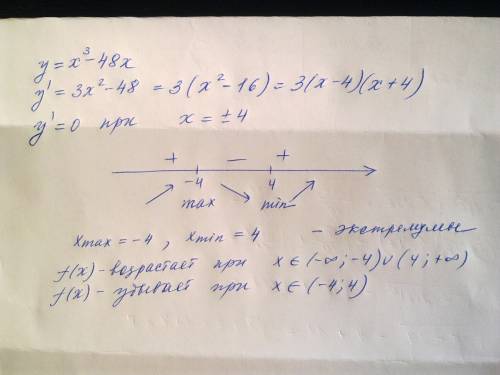 y = x³ - 48x
y' = 3x² - 48 = 3(x² - 16) = 3(x - 4)(x + 4)
y' = 0 при x = ±4
+ − +
-4 4
max min
xmax = -4, xmin = 4 - экстремумы
f(x) - возрастает при x ∈ (-∞; -4) ∪ (4; +∞)
f(x) - убывает при x ∈ (-4; 4)